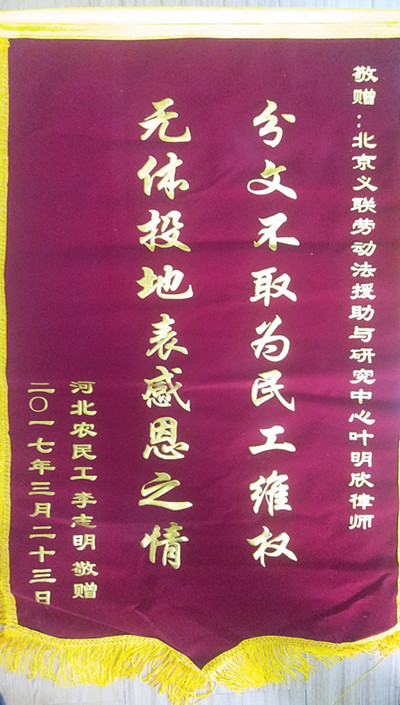 敬赠：北京义联劳动法援助与研究中心叶明欣律师
分文不取为民工维权
无体投地表感恩之情
河北农民工 李志明 敬赠
二〇一七年三月二十三日